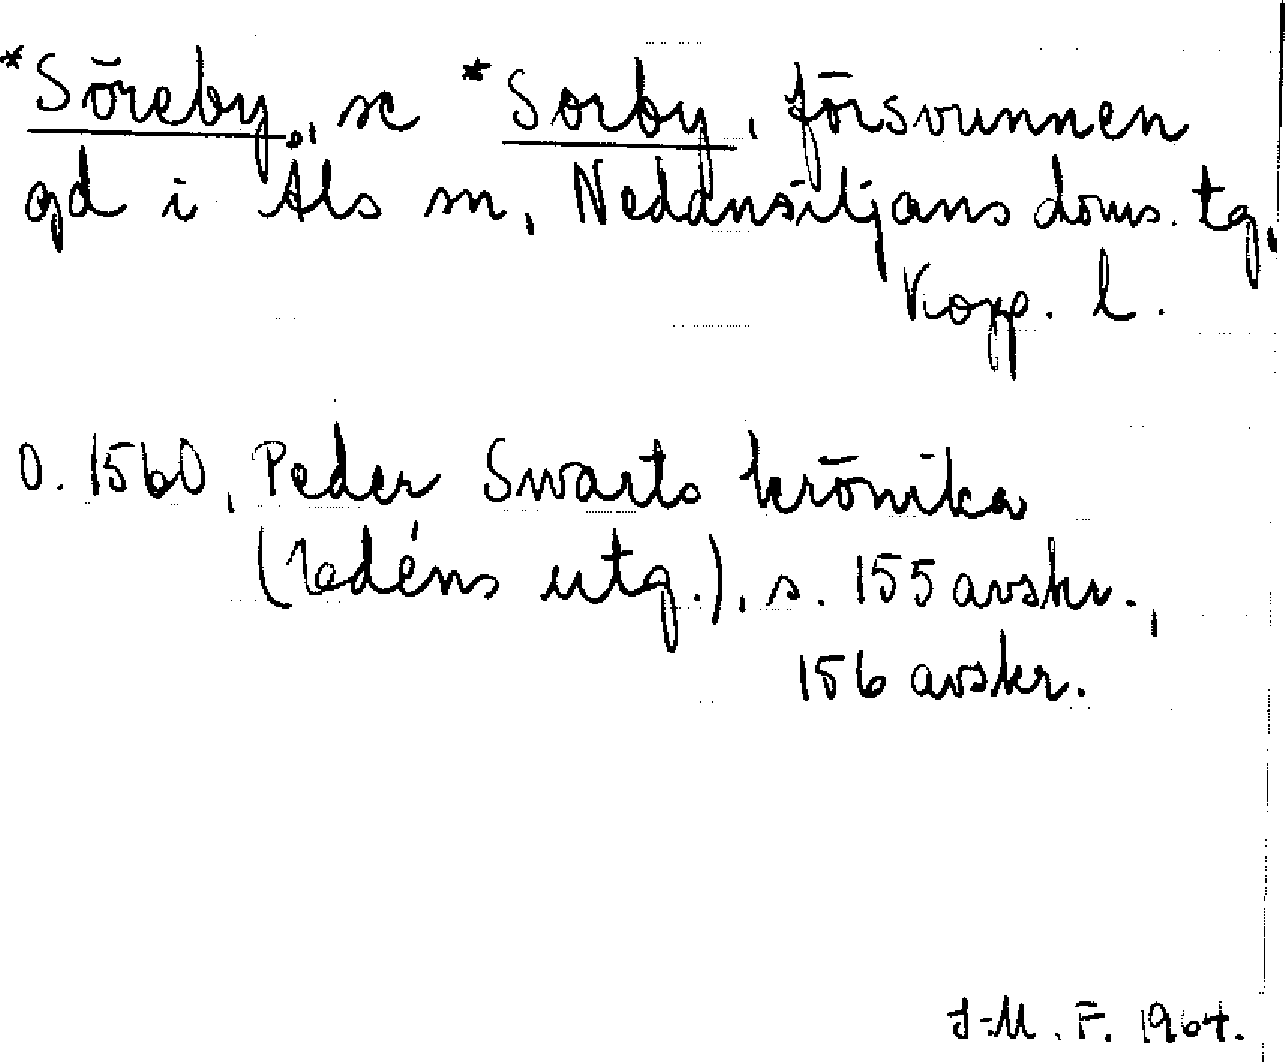 *Söreby, se *Sorby, försvunnen
gd i Åls sn, Nedansiljans doms. tg,
Kopp. l.
O. 1560, Peder Swarts krönika
(Edéns utg.), s. 155 avskr.,
156 avskr.
J-M. F. 1964.